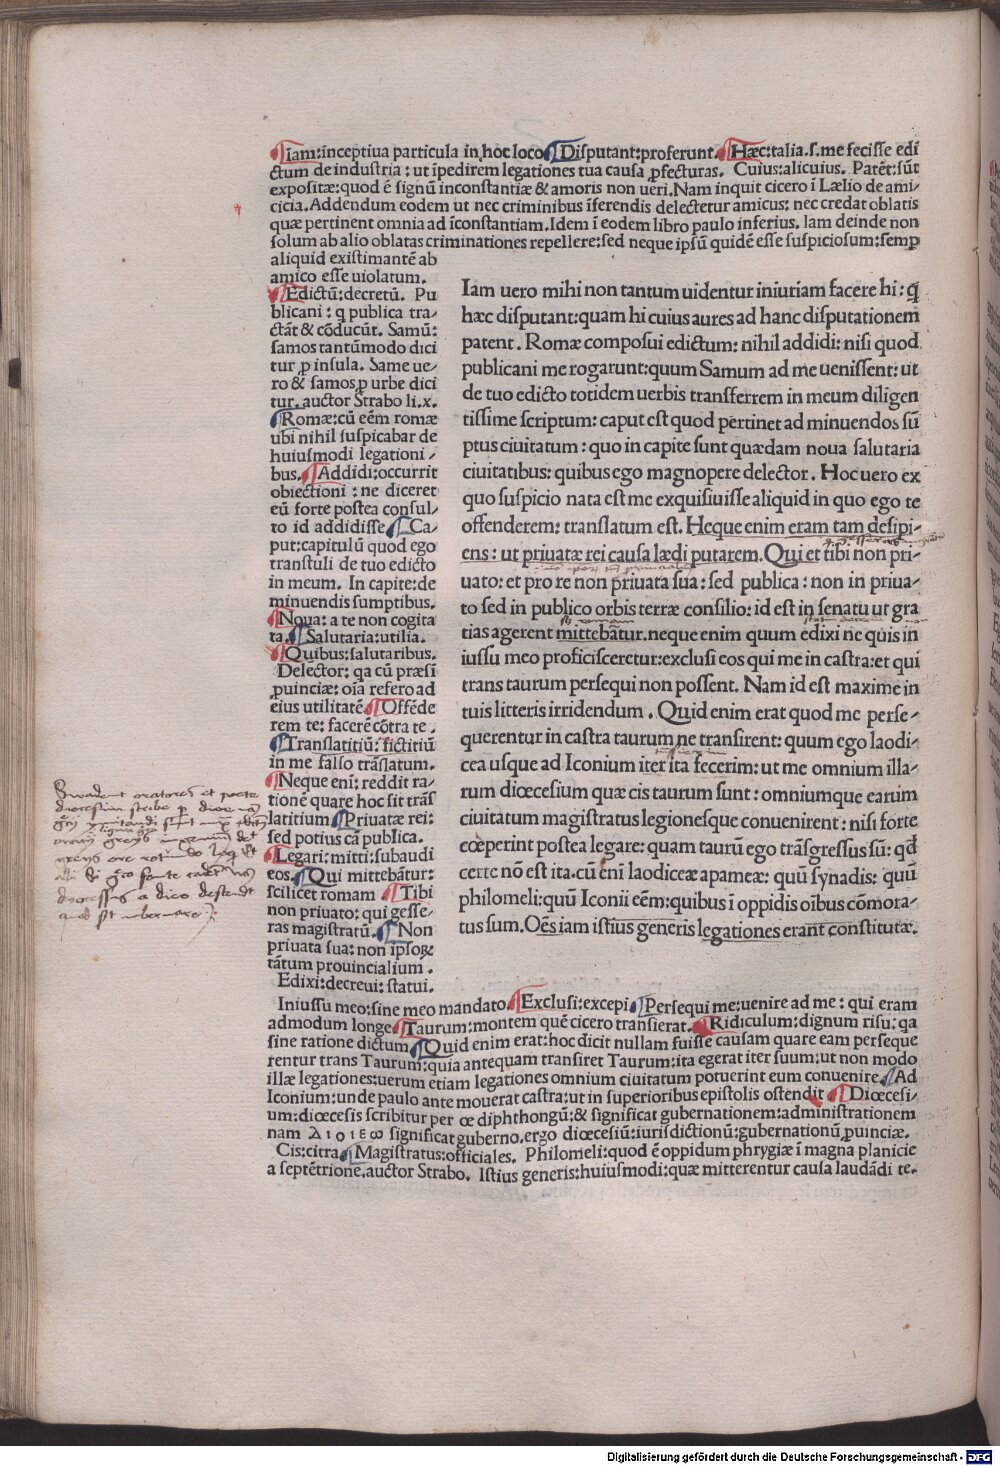 Iam: inceptiua particula in hoc loco Disputant: proferunt. Hæc: talia.s. me fecisse edi
ctum de industria: ut īpedirem legationes tua causa ꝓfecturas. Cuius: alicuius. Patēt: sūt
expositæ: quod ē signū inconstantiæ & amoris non ueri. Nam inquit cicero ī Lælio de ami-
cicia. Addendum eodem ut nec criminibus īferendis delectetur amicus: nec credat oblatis
quæ pertinent omnia ad īconstantiam. Idem ī eodem libro paulo inferius. Iam deinde non
solum ab alio oblatas criminationes repellere: sed neque ipsū quidē esse suspiciosum: semꝑ
aliquid existimantē ab
amico esse uiolatum.
Edictū: decretū. Pu
blicani: ꝗ publica tra-
ctāt & cōducūt. Samū:
samos tantūmodo dici
tur ꝓ insula. Same ue-
ro & samos ꝓ urbe dici
tur. auctor Strabo li.x.
Romæ: cū eēm romæ
ubi nihil suspicabar de
huiusmodi legationi-
bus. Addidi: occurrit
obiectioni: ne diceret
eū forte postea consul-
to id addidisse Ca-
put: capitulū quod ego
transtuli de tuo edicto
in meum. In capite: de
minuendis sumptibus.
Noua: a te non cogita
ta. Salutaria: utilia.
Quibus: salutaribus.
Delector: qa cū præsī
ꝓuinciæ: oīa refero ad
eius utilitatē Offēde
rem te: facerē cōtra te.
Translatitiū: fictitiū
in me falso trāslatum.
Neque enī: reddit ra-
tionē quare hoc sit trās
latitium Priuatæ rei:
sed potius cā publica.
Legari: mitti: subaudi
eos. Qui mittebātur:
scilicet romam Tibi
non priuato: qui gesse-
ras magistratū. Non
priuata sua: non ipsoꝝ
tātum prouincialium.
Edixi: decreui: statui.
Iam uero mihi non tantum uidentur iniuriam facere hi: ꝗ
hæc disputant: quam hi cuius aures ad hanc disputationem
patent. Romæ composui edictum: nihil addidi: nisi quod
publicani me rogarunt: quum Samum ad me uenissent: ut
de tuo edicto totidem uerbis transferrem in meum diligen
tissime scriptum: caput est quod pertinet ad minuendos sū
ptus ciuitatum: quo in capite sunt quædam noua salutaria
ciuitatibus: quibus ego magnopere delector. Hoc uero ex
quo suspicio nata est me exquisiuisse aliquid in quo ego te
offenderem: translatum est. Neque enim eram tam desipi-
ens: ut priuatæ rei causa lædi putarem. Qui et tibi non pri-
uato: et pro re non priuata sua: sed publica: non in priua-
to sed in publico orbis terræ consilio: id est in senatu ut gra
tias agerent mittebātur. neque enim quum edixi ne quis in
iussu meo proficisceretur: exclusi eos qui me in castra: et qui
trans taurum persequi non possent. Nam id est maxime in
tuis litteris irridendum. Quid enim erat quod me perse-
querentur in castra taurum ne transirent: quum ego laodi-
cea usque ad Iconium iter ita fecerim: ut me omnium illa-
rum diœcesium quæ cis taurum sunt: omniumque earum
ciuitatum magistratus legionesque conuenirent: nisi forte
cœperint postea legare: quam taurū ego trāsgressus sū: qđ
certe nō est ita. cū enī laodiceæ apameæ: quū synadis: quū
philomeli: quū Iconii eēm: quibus ī oppidis oībus cōmora-
tus sum. Oēs iam istius generis legationes erant constitutæ.
Iniussu meo: sine meo mandato. Exclusi: excepi Persequi me: uenire ad me: qui eram
admodum longe Taurum: montem quē cicero transierat. Ridiculum: dignum risu: qa
sine ratione dictum Quid enim erat: hoc dicit nullam fuisse causam quare eam perseque
rentur trans Taurum: quia antequam transiret Taurum: ita egerat iter suum: ut non modo
illæ legationes: uerum etiam legationes omnium ciuitatum potuerint eum conuenire Ad
Iconium: unde paulo ante mouerat castra: ut in superioribus epistolis ostendit Diœcesi-
um: diœcesis scribitur per œ diphthongū: & significat gubernationem: administrationem
nam λιοιεω significat guberno. ergo diœcesiū: iurisdictionū: gubernationū ꝓuinciæ.
Cis: citra Magistratus: officiales. Philomeli: quod ē oppidum phrygiæ ī magna planicie
a septētrione. auctor Strabo. Istius generis: huiusmodi: quæ mitterentur causa laudādi te.
Digitalisierung gefördert durch die Deutsche Forschungsgemeinschaft - DFG